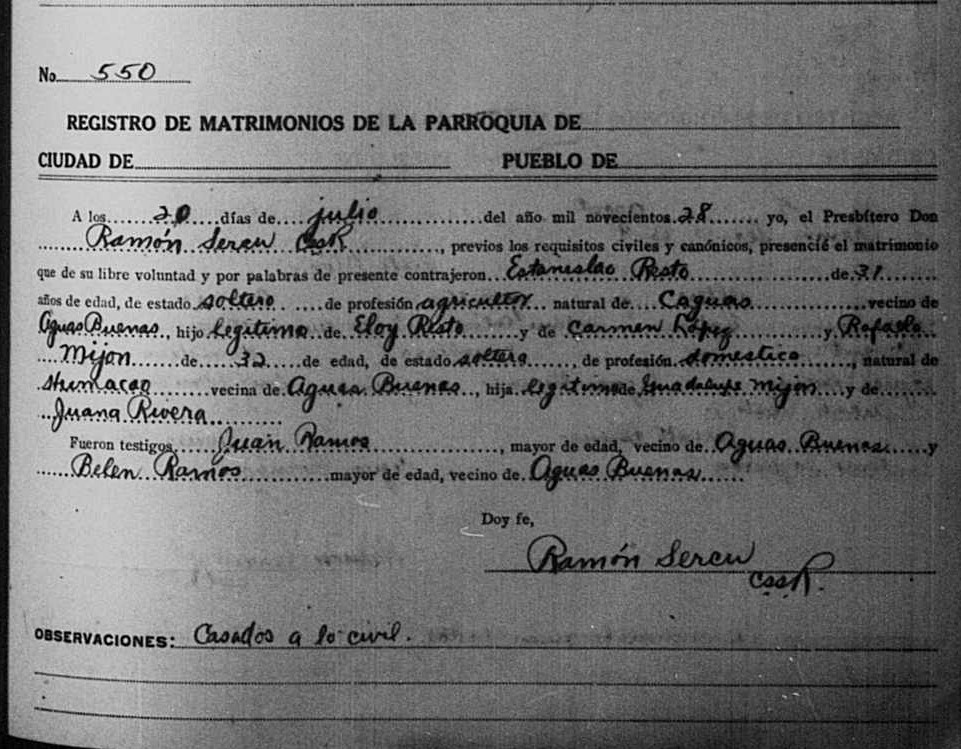 No. 550
REGISTRO DE MATRIMONIOS DE LA PARROQUIA DE
CIUDAD DE PUEBLO DE
A los 20 días de julio del año mil novecientos 28 yo, el Presbítero Don
Ramón Sercu CssR, previos los requisitos civiles y canónicos, presencié el matrimonio
que de su libre voluntad y por palabras de presente contrajeron Estanislao Resto de 31
años de edad, de estado soltero de profesión agricultor natural de Caguas vecino de
Aguas Buenas, hijo legitimo de Eloy Resto y de Carmen López y Rafaela
Mijon de 32 de edad, de estado soltera, de profesión domestica, natural de
Humacao vecina de Aguas Buenas, hija legitima de Guadalupe Mijon y de
Juana Rivera
Fueron testigos Juan Ramos, mayor de edad, vecino de Aguas Buenas y
Belen Ramos mayor de edad, vecino de Aguas Buenas
Doy fe,
Ramón Sercu
CssR.
OBSERVACIONES: Casados a lo civil.